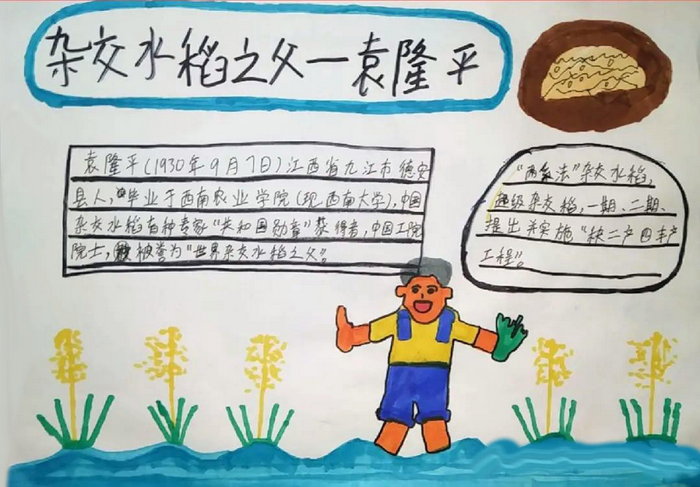 杂交水稻之父一袁隆平
袁隆平(1930年9月7日)江西省九江市德安
县人,毕业于西南农业学院(现西南大学),中国
杂交水稻育种专家"共和国勋章"获得者,中国工院
院士,被誉为"世界杂交水稻之父"。
"两系法"杂交水稻,
超级杂交稻,一期、二期、
提出并实施"种二产四丰产
工程"。